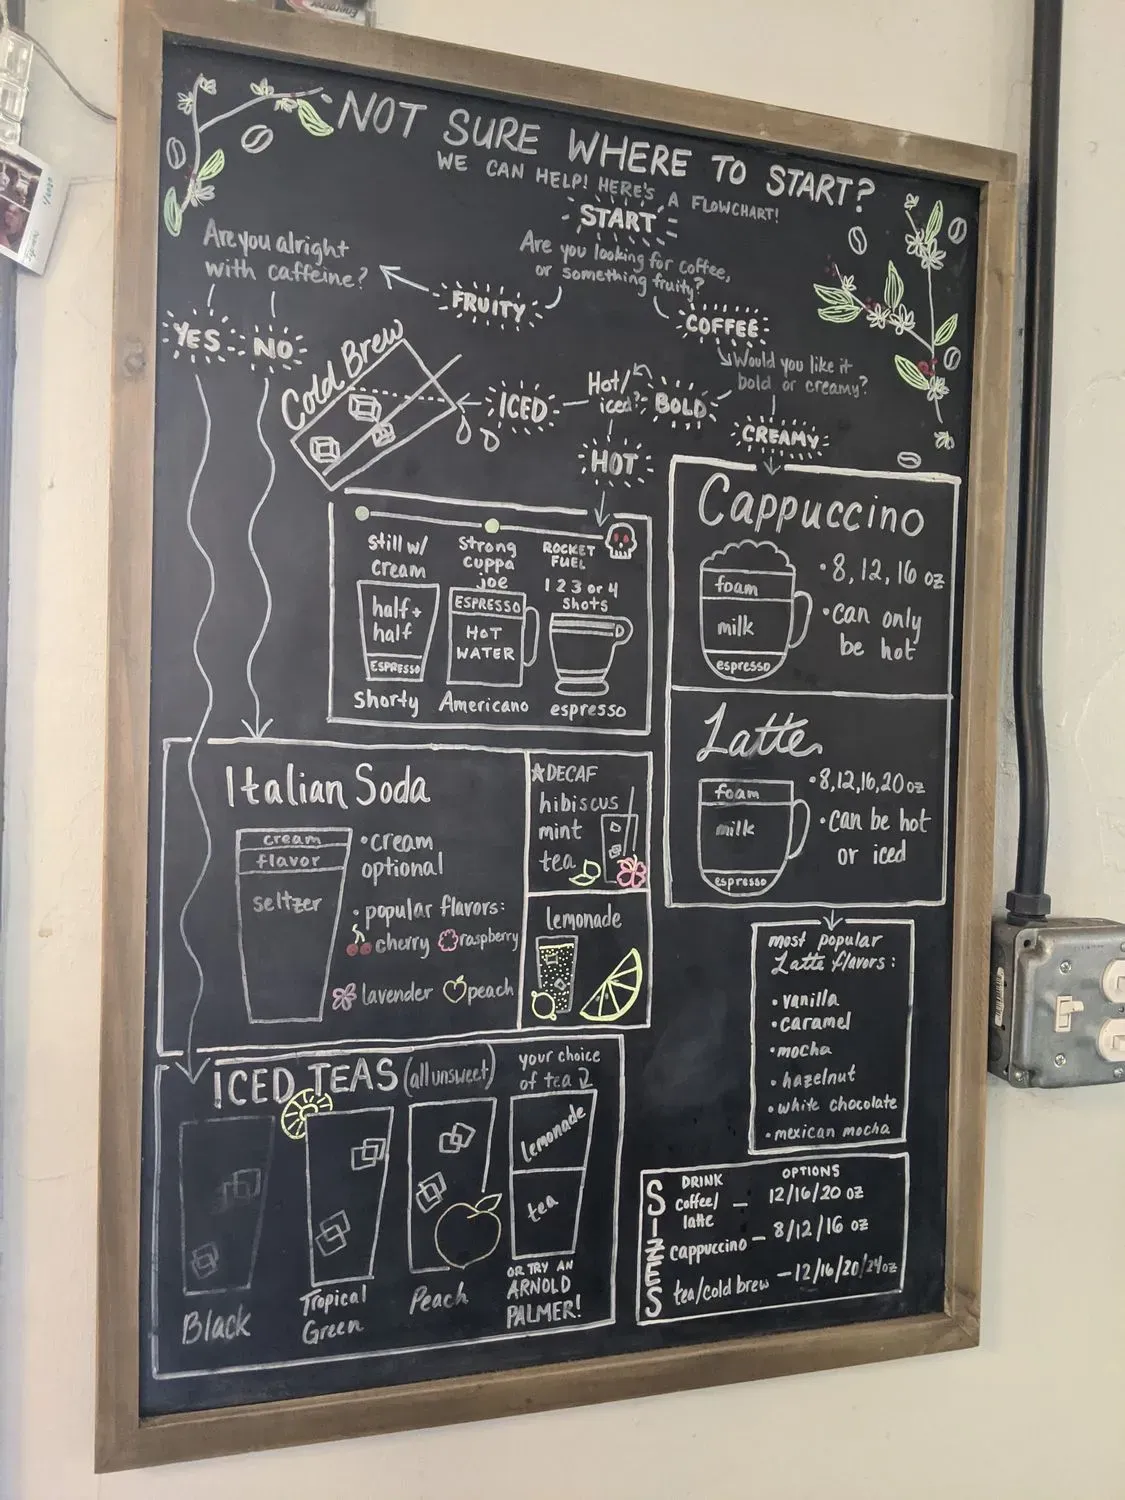 NOT SURE WHERE TO START?
WE CAN HELP! HERE'S A FLOWCHART!
START
Are you looking for coffee,
or something fruity?
FRUITY
COFFEE
Are you alright
with caffeine?
YES
NO
Would you like it
bold or creamy?
BOLD
CREAMY
Hot/
iced?
ICED
HOT
Cold Brew
still w/
cream
half +
half
ESPRESSO
Shorty
Strong
cuppa
joe
ESPRESSO
HOT
WATER
Americano
ROCKET
FUEL
1 2 3 or 4
shots
espresso
Cappuccino
foam
milk
espresso
•8, 12, 16 oz
•can only
be hot
Latte
foam
milk
espresso
•8,12,16,20 oz
•can be hot
or iced
most popular
Latte flavors:
•vanilla
•caramel
•mocha
•hazelnut
•white chocolate
•mexican mocha
Italian Soda
cream
flavor
seltzer
•cream
optional
•popular flavors:
cherry raspberry
lavender peach
★DECAF
hibiscus
mint
tea
lemonade
ICED TEAS (all unsweet)
Black
Tropical
Green
Peach
your choice
of tea
lemonade
tea
OR TRY AN
ARNOLD
PALMER!
SIZES
DRINK OPTIONS
coffee/
latte — 12/16/20 oz
cappuccino — 8/12/16 oz
tea/cold brew — 12/16/20/24oz